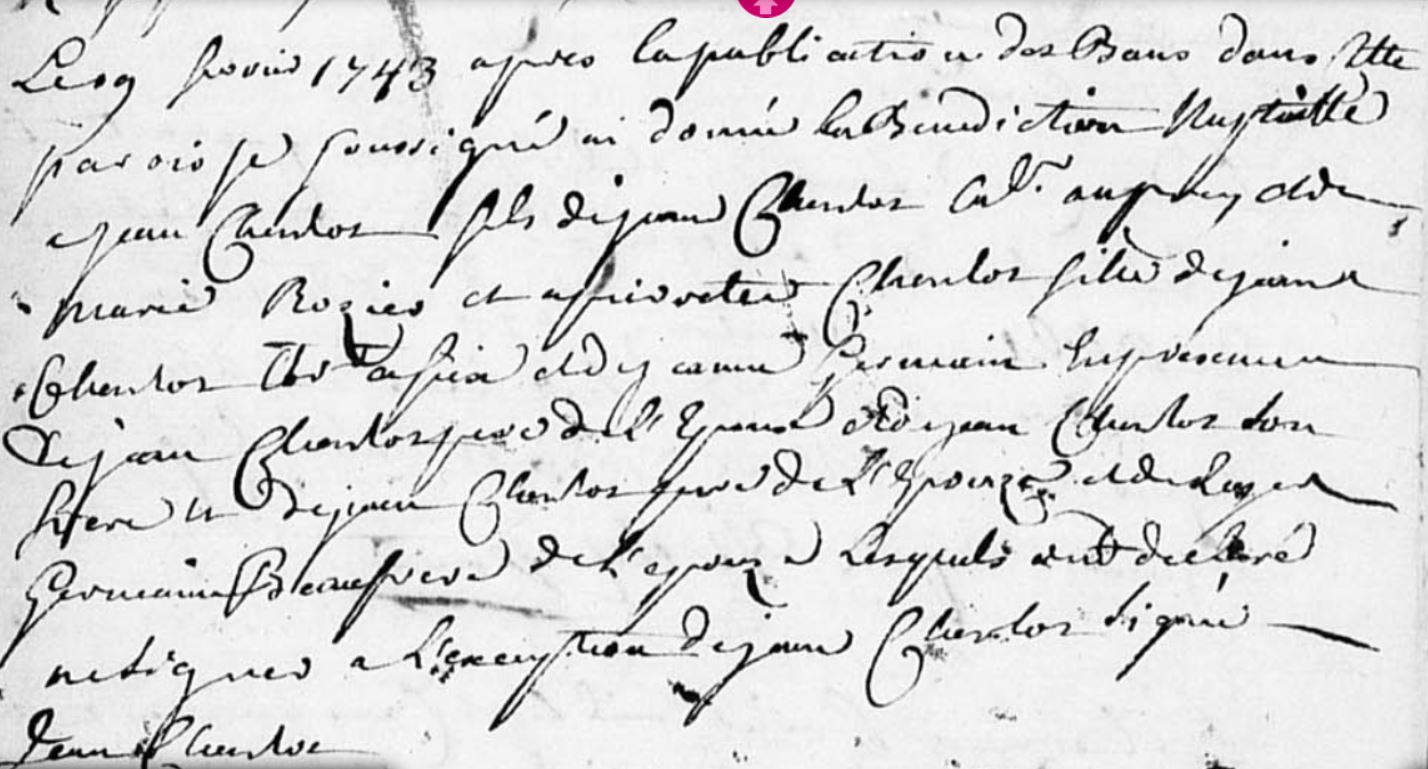 fevrier 1743 apres la publication des Bans dans
paroisse soussigné ai donné la Benediction Nuptialle
a jean Charlot fils de jean Charlot et de
marie Rozier et Charlot fille de jean
Charlot et de jeanne Germain En presence
de jean Charlot pere de l'Epoux et de jean Charlot son
frere et de jean Charlot pere de l'Epouze et de
Germain Beaufrere de l'epouze Lesquels ont declaré
ne signer a l'exception de jean Charlot signé
Jean Charlot